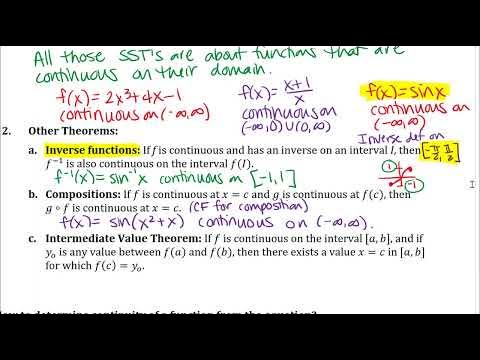 All those SST's are about functions that are
continuous on their domain.
f(x) = 2x³+4x-1
continuous on (-∞,∞)
f(x) = x+1/x
continuous on
(-∞,0) ∪ (0,∞)
f(x) = sinx
continuous on
(-∞,∞)
Inverse def on
[-π/2, π/2]
2. Other Theorems:
a. Inverse functions: If f is continuous and has an inverse on an interval I, then
f⁻¹ is also continuous on the interval f(I).
f⁻¹(x) = sin⁻¹x continuous on [-1,1]
1
-1
b. Compositions: If f is continuous at x = c and g is continuous at f(c), then
g ∘ f is continuous at x = c. (CF for composition)
f(x) = sin(x²+x) continuous on (-∞,∞).
c. Intermediate Value Theorem: If f is continuous on the interval [a, b], and if
y₀ is any value between f(a) and f(b), then there exists a value x = c in [a, b]
for which f(c) = y₀.
to determine continuity of a function from the equation?